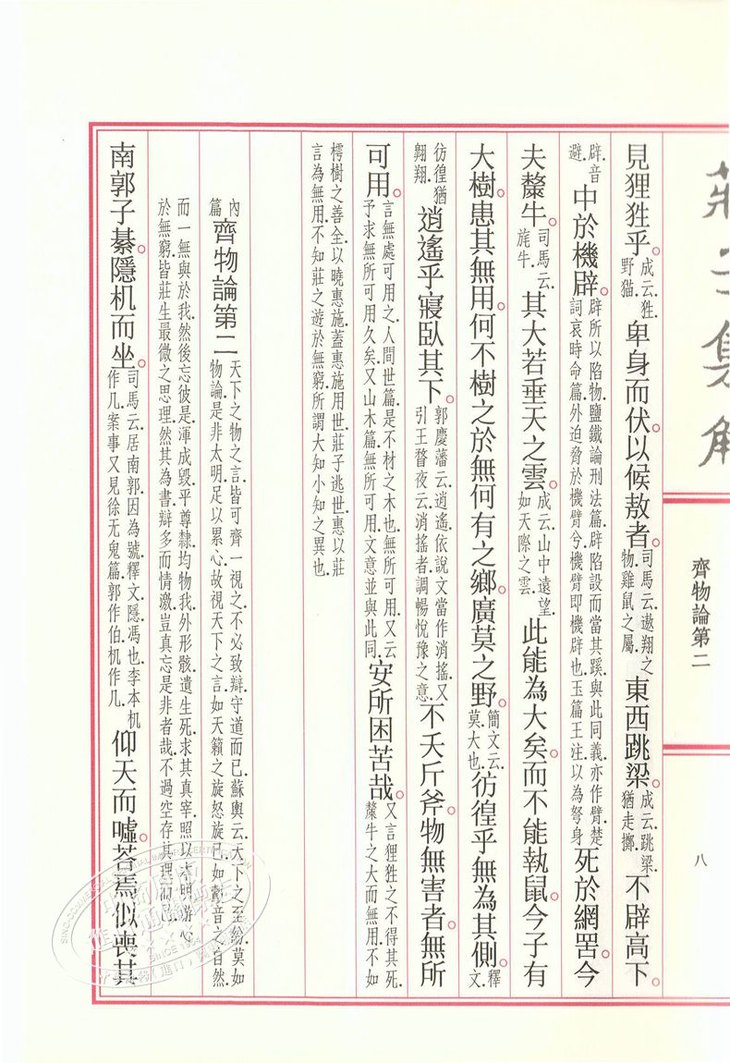 莊子集解
齊物論第二
八
見狸狌乎。成云狌.野猫.卑身而伏以候敖者。司馬云遨翔之物.雞鼠之屬.東西跳梁。成云跳梁.猶走擲.不辟高下。
辟音避.中於機辟。辟所以陷物.鹽鐵論刑法篇.辟陷設而當其蹊.與此同義.亦作臂.楚詞哀時命篇.外迫脅於機臂兮.機臂即機辟也.玉篇王注.以為弩身.死於網罟。今
夫斄牛。司馬云.旄牛.其大若垂天之雲。成云.山中遠望.如天際之雲.此能為大矣。而不能執鼠。今子有
大樹。患其無用。何不樹之於無何有之鄉。廣莫之野。簡文云.莫.大也.彷徨乎無為其側。釋文.
彷徨猶翱翔.逍遙乎寢臥其下。郭慶藩云.逍遙.依說文當作消搖.又引王瞀夜云.消搖者.調暢悅豫之意.不夭斤斧。物無害者。無所
可用。言無處可用之.人間世篇.是不材之木也.無所可用.又云.予求無所可用久矣.又山木篇.無所可用.文意並與此同.安所困苦哉。又言狸狌之不得其死.斄牛之大而無用.不如
樗樹之善全.以曉惠施.蓋惠施用世.莊子逃世.惠以莊言為無用.不知莊之遊於無窮.所謂大知小知之異也.
內篇齊物論第二天下之物之言.皆可齊一視之.不必致辯.守道而已.蘇輿云.天下之至紛.莫如物論.是非太明.足以累心.故視天下之言.如天籟之旋怒旋已.如鷇音之自然.
而一無與於我.然後忘彼是.渾成毀.平尊隸.均物我.外形骸.遺生死.求其真宰.照以本明.游心於無窮.皆莊生最微之思理.然其為書.辯多而情激.豈真忘是非者哉.不過空存其理而已.
南郭子綦。隱机而坐。司馬云.居南郭.因為號.釋文.隱.馮也.李本机作几.案事又見徐无鬼篇.郭作伯.机作几.仰天而噓。荅焉似喪其